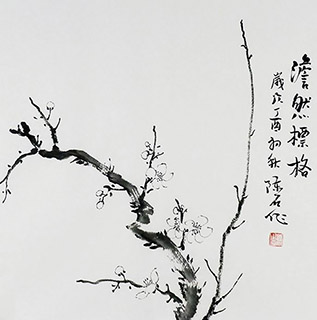 澹然標格
歲次丁酉初秋陳石作